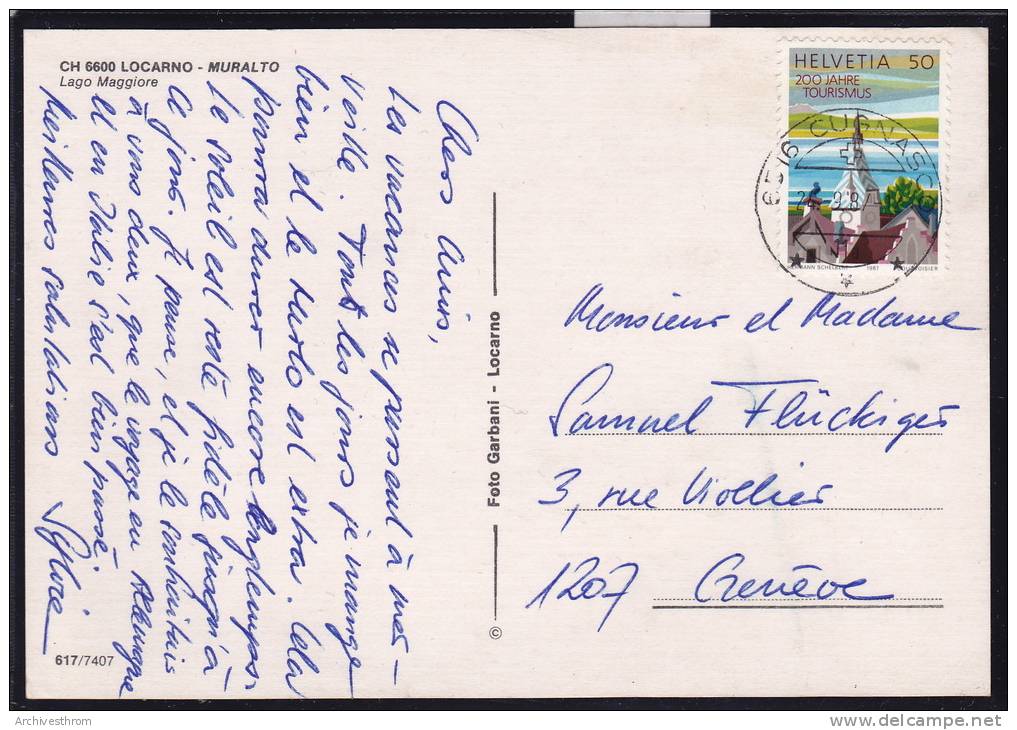 CH 6600 LOCARNO - MURALTO
Lago Maggiore
Chers Amis,
Les vacances se passent à mer-
veille. Tout les jours je mange
bien et le resto est extra. Cela
pourra durer encore longtemps
Le soleil est resté fidèle jusqu'à
ce jour. Je pense, et je le souhaitais
à vous deux, que le voyage en Allemagne
et en Italie s'est bien passé.
Meilleures salutations
617/7407
© Foto Garbani - Locarno
HELVETIA 50
200 JAHRE
TOURISMUS
6516 CUGNASCO
HERMANN SCHELBERT 1987 COURVOISIER
Monsieur et Madame
Samuel Flückiger
3, rue Viollier
1207 Genève
Archivesthrom
www.delcampe.net